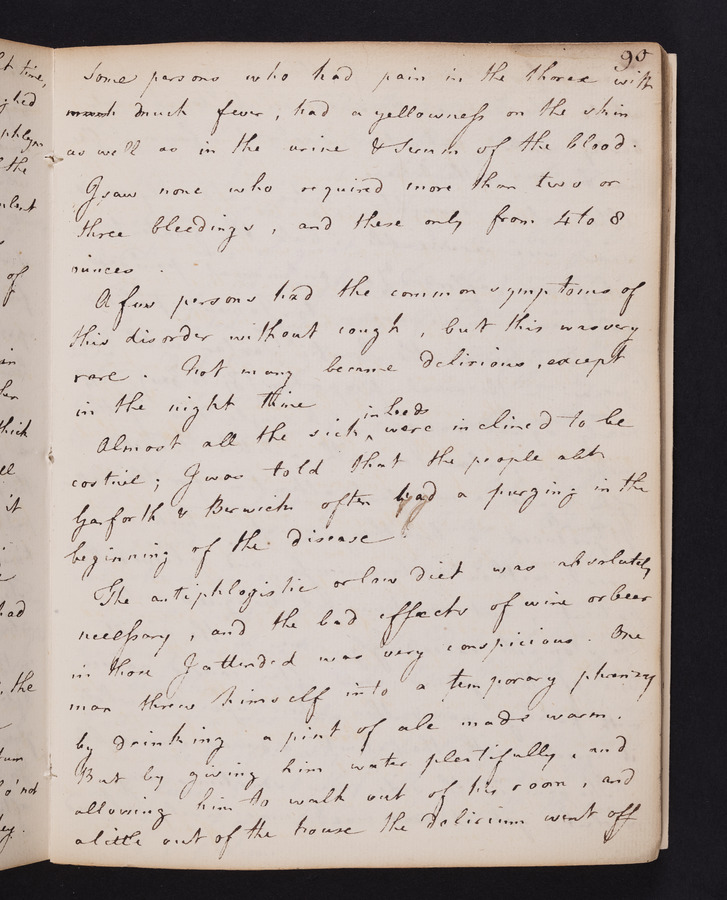 90
Some persons who had pain in the thorax with
much much fever, had a yellowness on the skin
as well as in the urine & serum of the blood.
I saw none who required more than two or
three bleedings, and these only from 4 to 8
ounces.
A few persons had the common symptoms of
this disorder without cough, but this was very
rare. Not many became delirious, except
in the night time
in Leeds
Almost all the sick, were inclined to be
costive; I was told that the people abt
Garforth & Berwick often had a purging in the
beginning of the disease
The antiphlogistic or low diet was absolutely
necessary, and the bad effects of wine or beer
in those I attended was very conspicious. One
man threw himself into a temporary phrenzy
by drinking a pint of ale made warm.
But by giving him water plentifully, and
allowing him to walk out of his room, and
a little out of the house the delirium went off